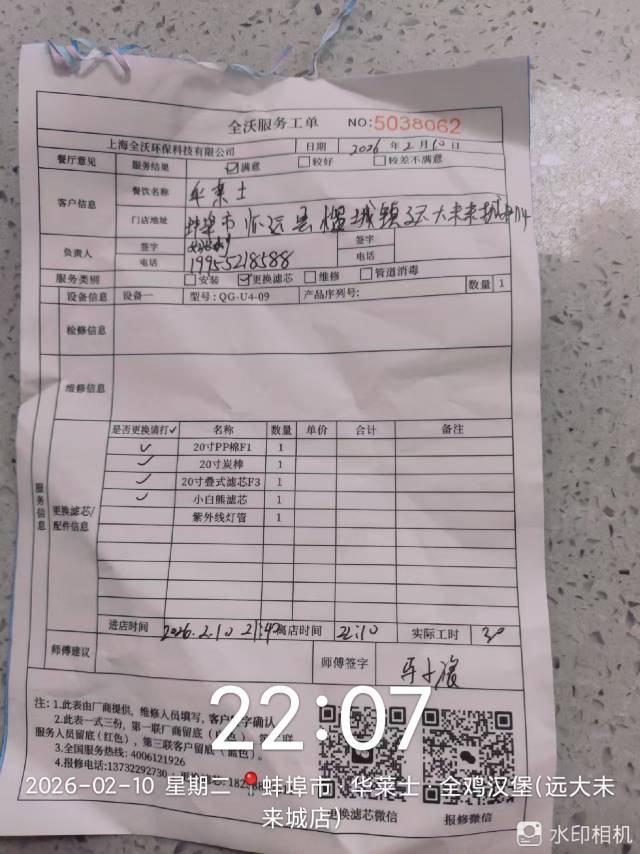 全沃服务工单 NO:5038062
上海全沃环保科技有限公司 日期 2026年2月10日
餐厅意见 服务结果 ☑满意 □较好 □较差不满意
客户信息 餐饮名称 华莱士
门店地址 蚌埠市怀远县榴城镇远大未来城
负责人 签字 签字
电话 19955218588 电话
服务类别 □安装 ☑更换滤芯 □维修 □管道消毒
设备信息 设备一 型号:QG-U4-09 产品序列号: 数量 1
检修信息
维修信息
服务信息
更换滤芯/配件信息
是否更换请打✓ 名称 数量 单价 合计 备注
✓ 20寸PP棉F1 1
✓ 20寸炭棒 1
✓ 20寸叠式滤芯F3 1
✓ 小白熊滤芯 1
紫外线灯管 1
进店时间 2026.2.10 21:40 离店时间 22:10 实际工时 30
师傅建议 师傅签字
注:1.此表由厂商提供,维修人员填写,客户签字确认
2.此表一式三份,第一联厂商留底
服务人员留底(红色),第三联客户留底(蓝色)。
3.全国服务热线:4006121926
4.报修电话:13732292730
更换滤芯微信 报修微信
22:07
2026-02-10 星期二 蚌埠市·华莱士·全鸡汉堡(远大未
来城店)
水印相机